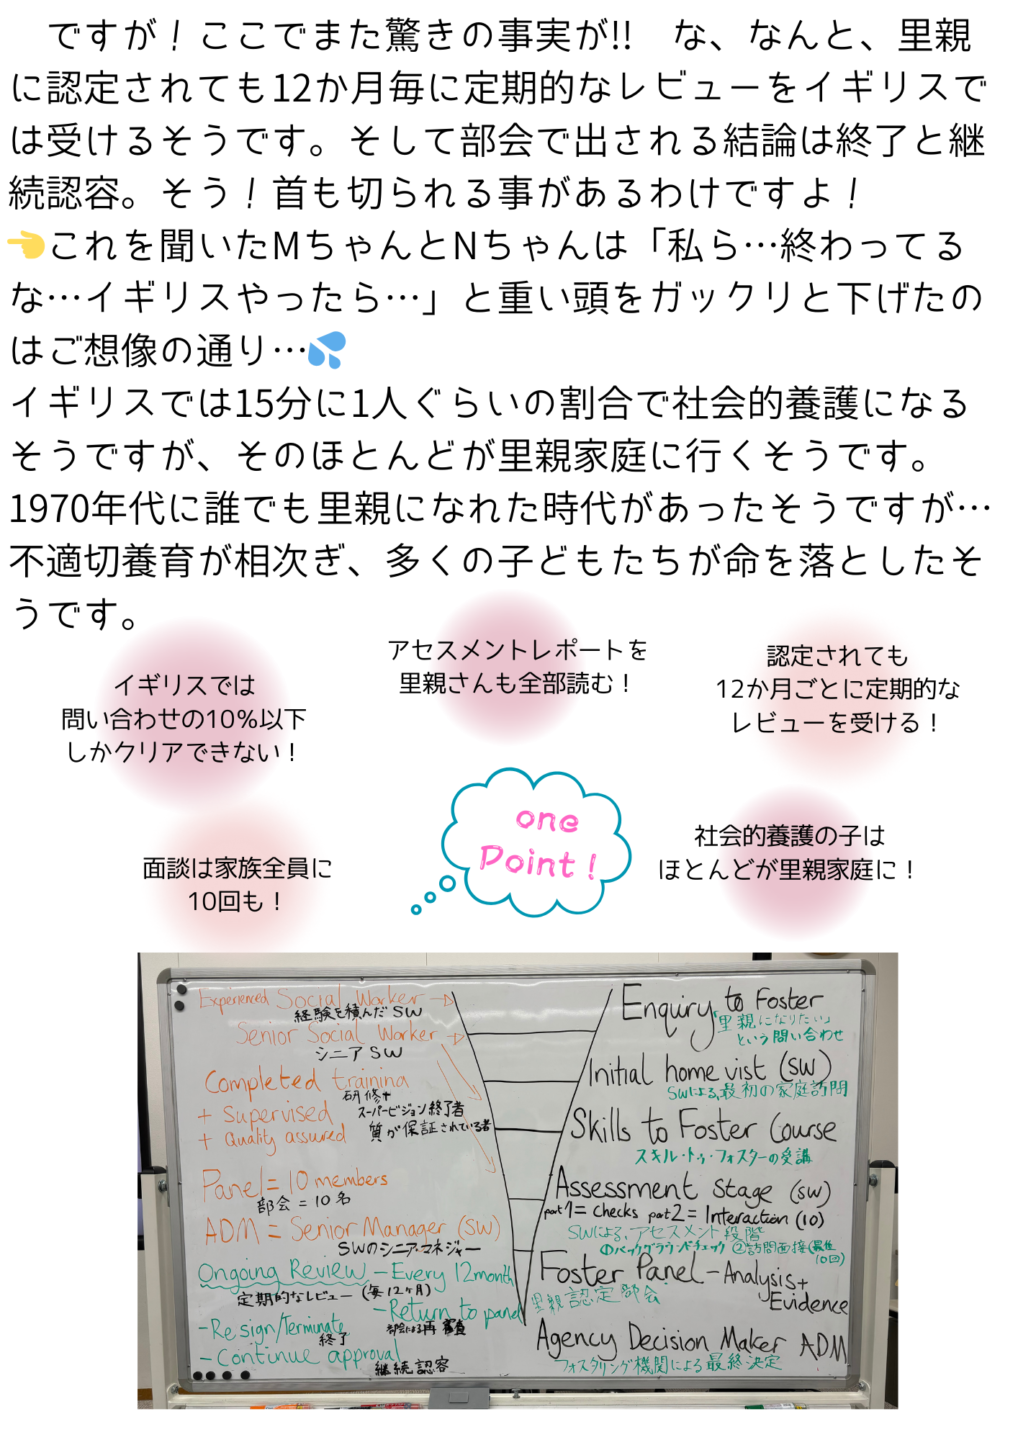 ですが！ここでまた驚きの事実が!!　な、なんと、里親
に認定されても12か月毎に定期的なレビューをイギリスで
は受けるそうです。そして部会で出される結論は終了と継
続認容。そう！首も切られる事があるわけですよ！
👈これを聞いたMちゃんとNちゃんは「私ら…終わってる
な…イギリスやったら…」と重い頭をガックリと下げたの
はご想像の通り…💦
イギリスでは15分に1人ぐらいの割合で社会的養護になる
そうですが、そのほとんどが里親家庭に行くそうです。
1970年代に誰でも里親になれた時代があったそうですが…
不適切養育が相次ぎ、多くの子どもたちが命を落としたそ
うです。
アセスメントレポートを
里親さんも全部読む！
認定されても
12か月ごとに定期的な
レビューを受ける！
イギリスでは
問い合わせの10％以下
しかクリアできない！
one
Point！
社会的養護の子は
ほとんどが里親家庭に！
面談は家族全員に
10回も！
Experienced Social Worker →
経験を積んだSW
Senior Social Worker →
シニアSW
Completed training
研修＋
+ Supervised
スーパービジョン終了者
+ Quality assured
質が保証されている者
Panel = 10 members
部会 = 10名
ADM = Senior Manager (SW)
SWのシニアマネジャー
Ongoing Review – Every 12month
定期的なレビュー (毎12ヶ月)
– Return to panel
部会による再審査
– Resign/Terminate
終了
– Continue approval
継続認容
Enquiry to Foster
「里親になりたい」
という問い合わせ
Initial home vist (SW)
SWによる最初の家庭訪問
Skills to Foster Course
スキル・トゥ・フォスターの受講
Assessment Stage (SW)
part 1 = checks part 2 = Interaction (10)
SWによる、アセスメント段階
①バックグラウンドチェック ②訪問面接(最低
10回)
Foster Panel – Analysis +
Evidence
里親認定部会
Agency Decision Maker ADM
フォスタリング機関による最終決定